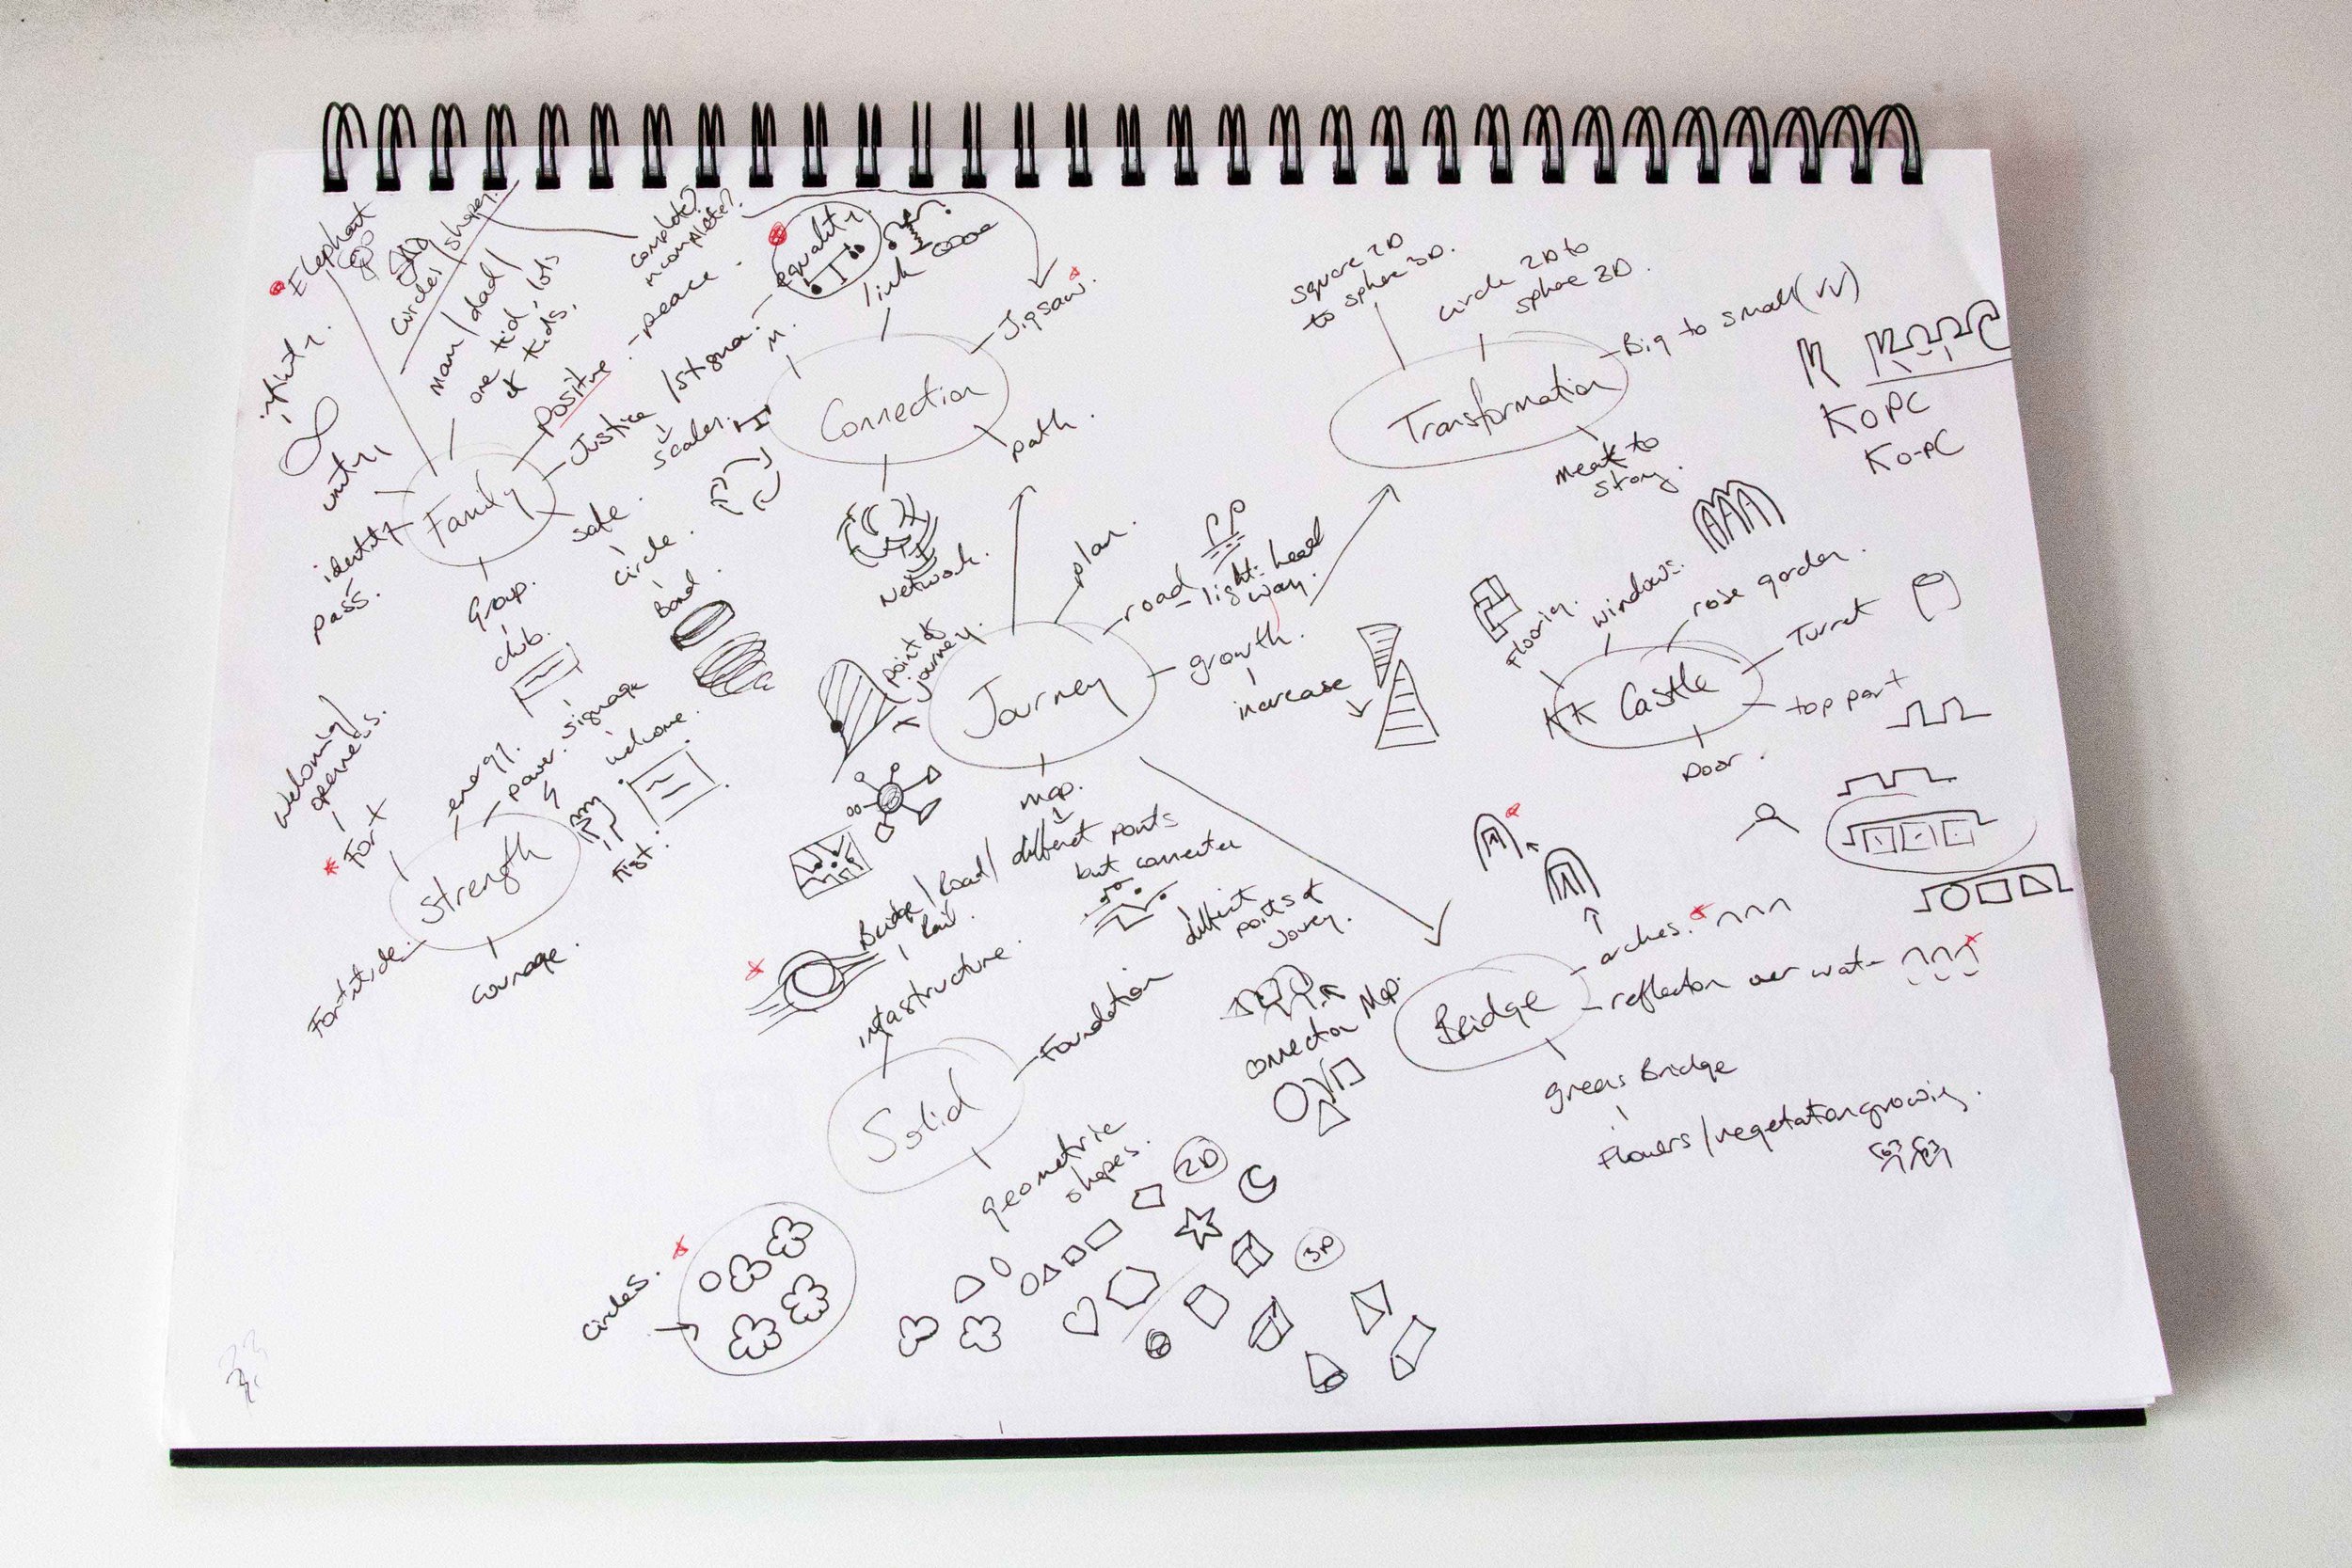 Elephant
circles/shapes.
mam/dad/
one kid, lots
of kids.
complete?
incomplete?
infinity.
unity
identity
pass.
Family
positive
peace
Justice
scales.
safe.
circle.
Bond.
Group.
club.
signage
welcome.
equality.
link
Jigsaw.
Connection
path.
Network.
square 2D
to sphere 3D.
circle 2D to
sphere 3D.
Big to small (vv)
Transformation
KOPC
KO-PC
plan.
road
light
way.
growth.
increase
point of
journey.
Journey
map.
different points
but connected
different
points of
Journey.
Bridge/Road/
Rail.
windows.
rose garden.
Flooring.
Turret
KK Castle
top part
Door.
welcoming/
openness.
Fort
energy.
power.
Fist.
Strength
Fortitude.
courage.
infastructure.
Foundation
Solid
geometric
shapes.
2D
3D
circles.
connection Map.
arches.
Bridge
reflection over water
Green Bridge
Flowers/vegetation growing.